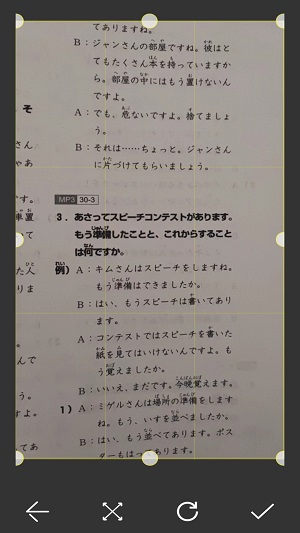 てありますね。
B：ジャンさんの部屋ですね。彼はと
てもたくさん本を持っていますか
ら。部屋の中にはもう置けないん
ですよ。
A：でも、危ないですよ。捨てましょ
う。
B：それは……ちょっと。ジャンさん
に片づけてもらいましょう。
MP3 30-3
3．あさってスピーチコンテストがあります。
もう準備したことと、これからすること
は何ですか。
例）A：キムさんはスピーチをしますね。
もう準備はできましたか。
B：はい、もうスピーチは書いてあり
ます。
A：コンテストではスピーチを書いた
紙を見てはいけないんですよ。も
う覚えましたか。
B：いいえ、まだです。今晩覚えます。
1）A：ミゲルさんは場所の準備をします
ね。もう、いすを並べましたか。
B：はい、もう並べてあります。ポス
ターもはってあります。